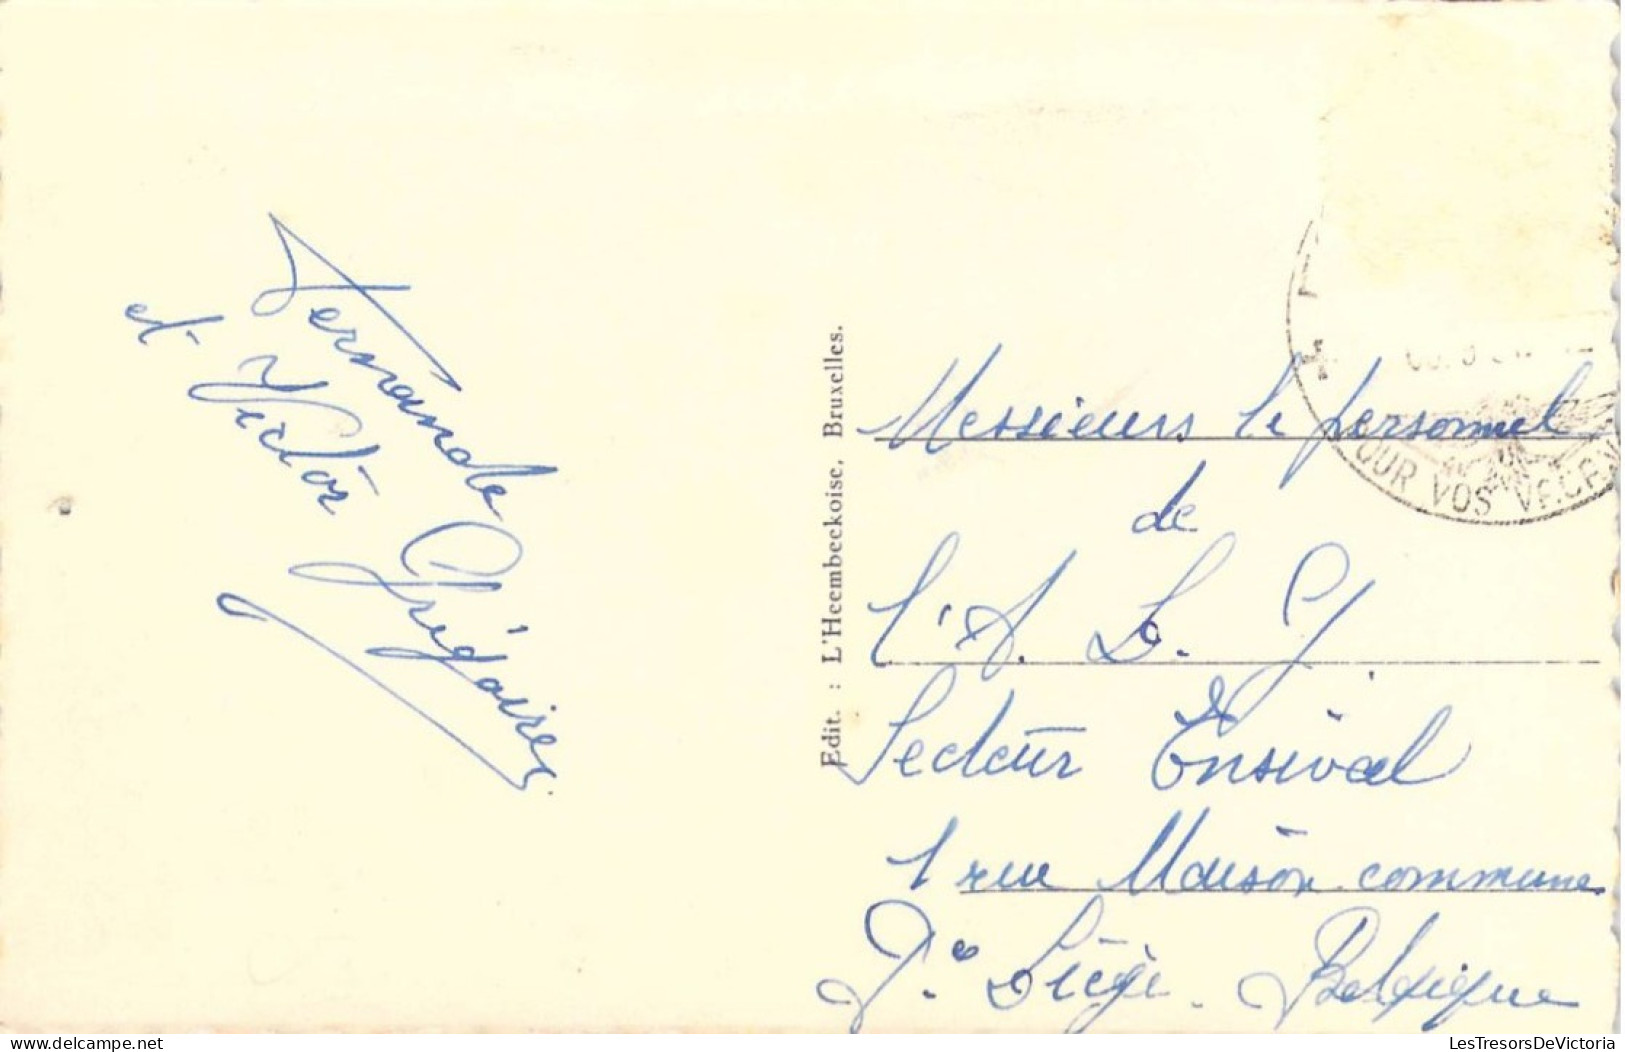 Fernande
et Victor
Grégoire
Edit. : L'Heembeckoise, Bruxelles.
POUR VOS
Messieurs le personnel
de
l'A. L. G
Secteur Ensival
1 rue Maison commune
Pce Liège. Belgique
delcampe.net
LesTresorsDeVictoria